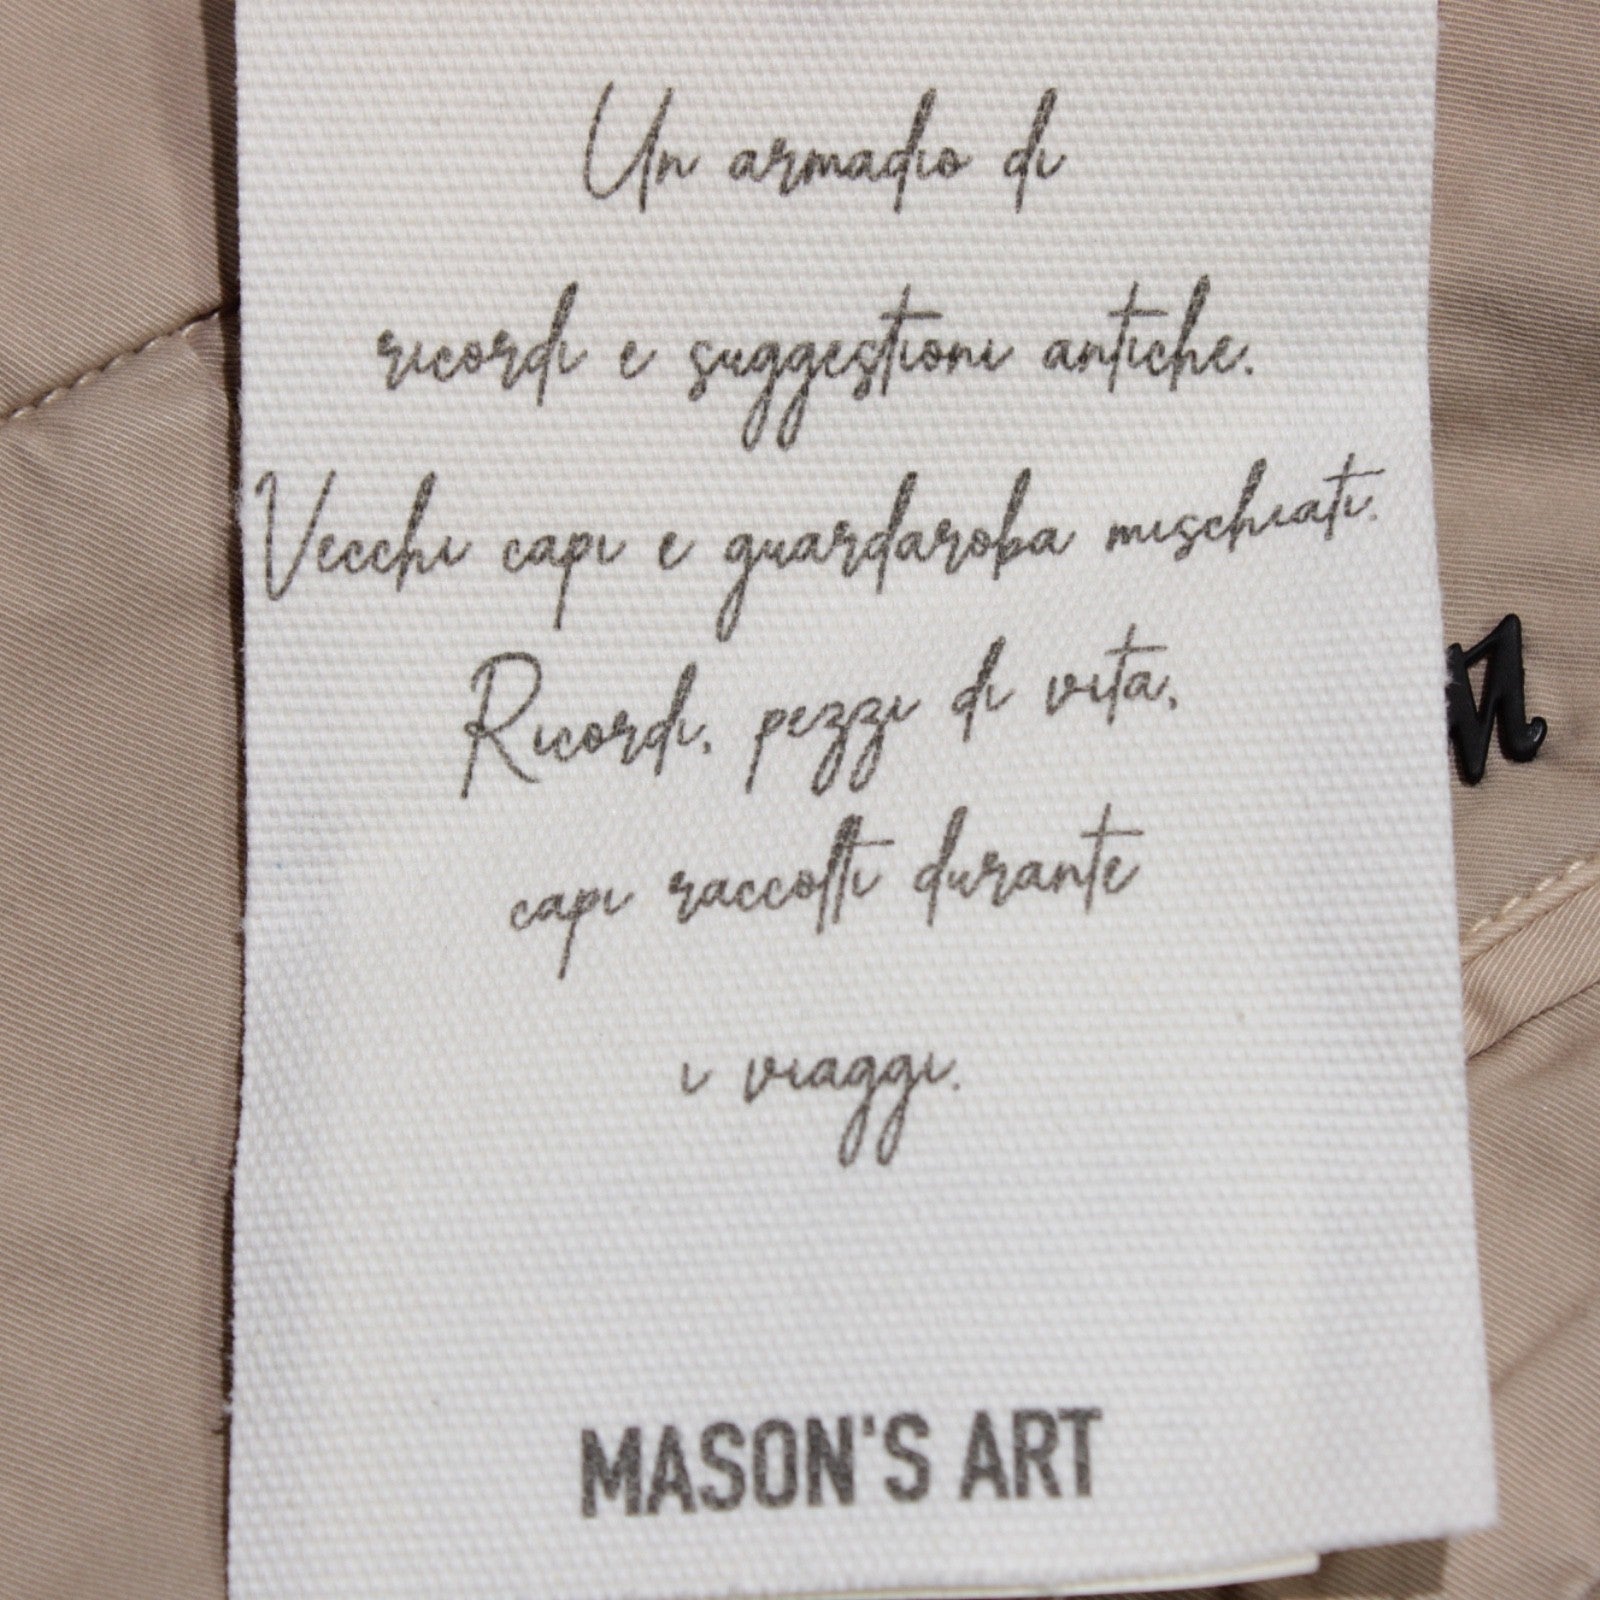 Un armadio di
ricordi e suggestioni antiche.
Vecchi capi e guardaroba mischiati.
Ricordi, pezzi di vita,
capi raccolti durante
i viaggi.
MASON'S ART